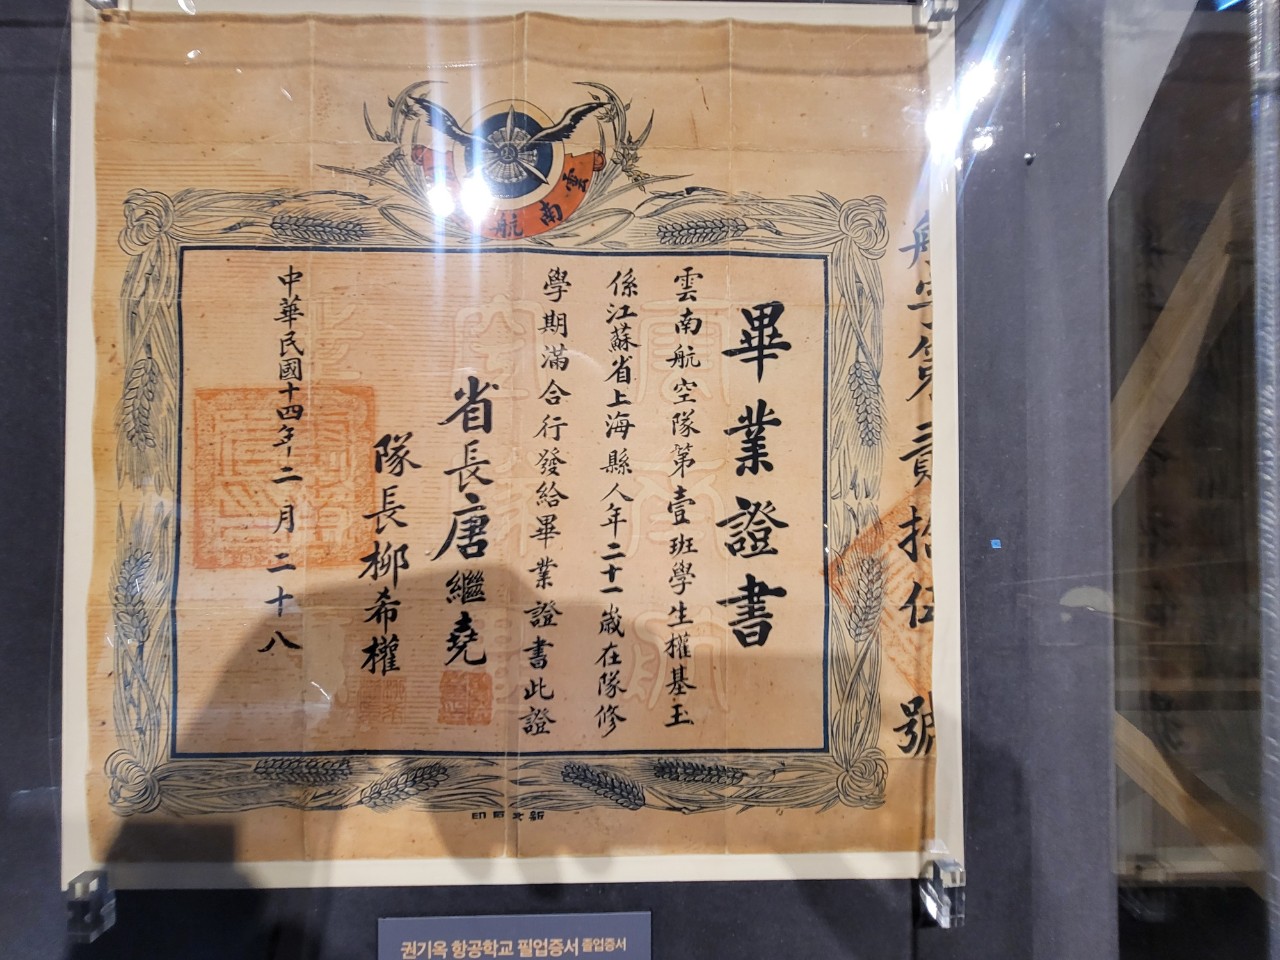 雲南航
航空第貳拾伍號
畢業證書
雲南航空隊第壹班學生權基玉
係江蘇省上海縣人年二十一歲在隊修
學期滿合行發給畢業證書此證
省長唐繼堯
隊長柳希權
中華民國十四年二月二十八
권기옥 항공학교 필업증서 졸업증서